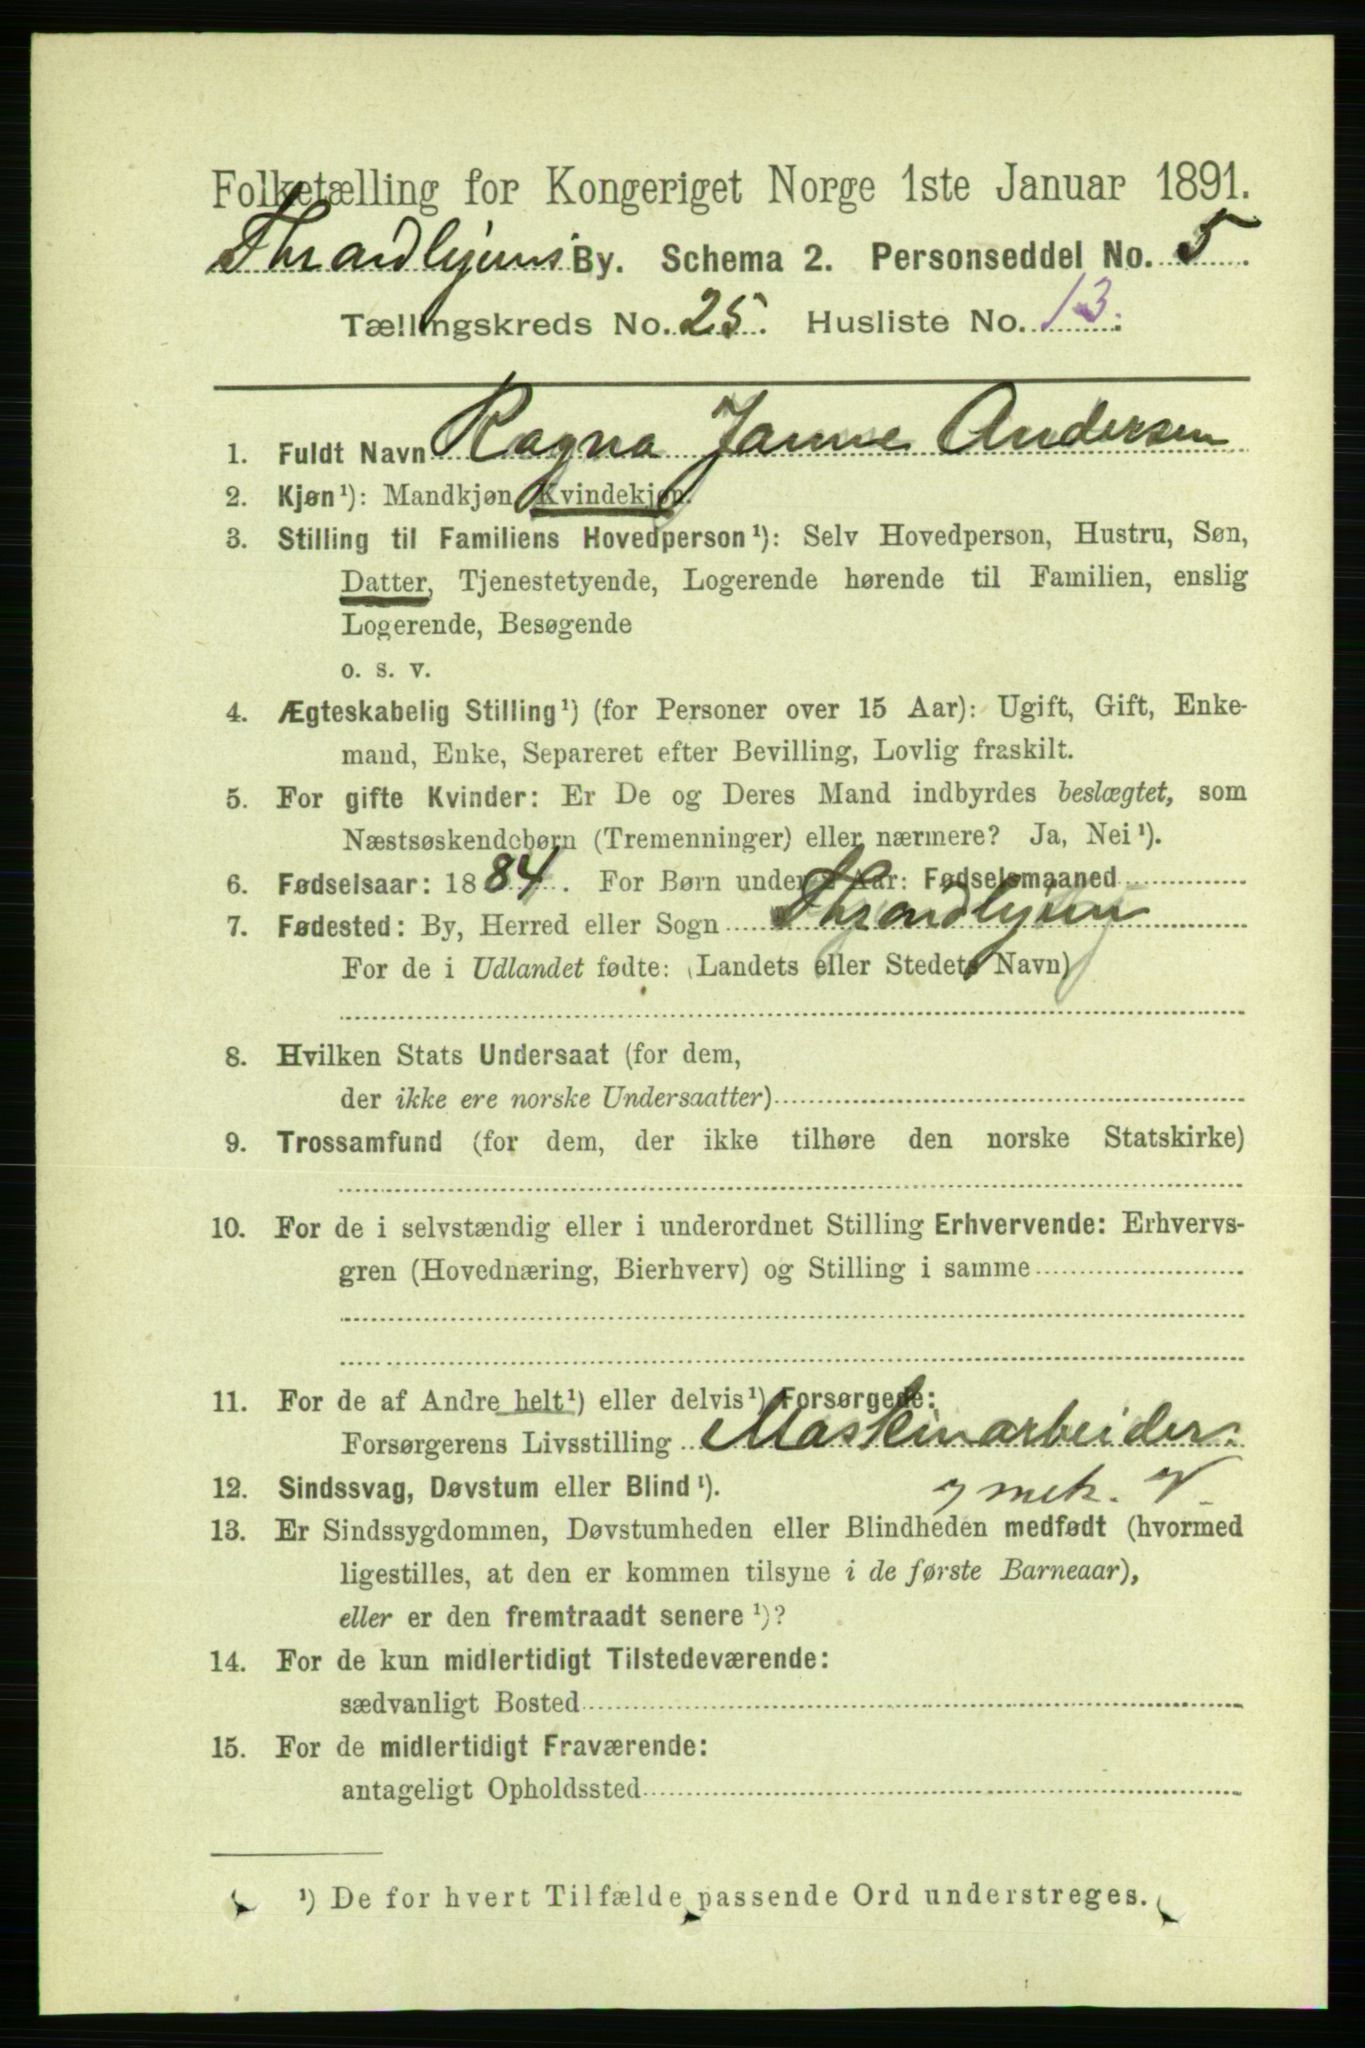 Folketælling for Kongeriget Norge 1ste Januar 1891.
Throndhjems By. Schema 2. Personseddel No. 5
Tællingskreds No. 25. Husliste No. 13.
1. Fuldt Navn Ragna Janne Andersen
2. Kjøn¹): Mandkjøn, Kvindekjøn.
3. Stilling til Familiens Hovedperson¹): Selv Hovedperson, Hustru, Søn,
Datter, Tjenestetyende, Logerende hørende til Familien, enslig
Logerende, Besøgende
o. s. v.
4. Ægteskabelig Stilling¹) (for Personer over 15 Aar): Ugift, Gift, Enke-
mand, Enke, Separeret efter Bevilling, Lovlig fraskilt.
5. For gifte Kvinder: Er De og Deres Mand indbyrdes beslægtet, som
Næstsøskendebørn (Tremenninger) eller nærmere? Ja, Nei¹).
6. Fødselsaar: 1884. For Børn under Aar: Fødselsmaaned
7. Fødested: By, Herred eller Sogn Throndhjem
For de i Udlandet fødte: (Landets eller Stedets Navn)
8. Hvilken Stats Undersaat (for dem,
der ikke ere norske Undersaatter)
9. Trossamfund (for dem, der ikke tilhøre den norske Statskirke)
10. For de i selvstændig eller i underordnet Stilling Erhvervende: Erhvervs-
gren (Hovednæring, Bierhverv) og Stilling i samme
11. For de af Andre helt¹) eller delvis¹) Forsørgede:
Forsørgerens Livsstilling Maskinarbeider.
mek. V.
12. Sindssvag, Døvstum eller Blind¹).
13. Er Sindssygdommen, Døvstumheden eller Blindheden medfødt (hvormed
ligestilles, at den er kommen tilsyne i de første Barneaar),
eller er den fremtraadt senere¹)?
14. For de kun midlertidigt Tilstedeværende:
sædvanligt Bosted
15. For de midlertidigt Fraværende:
antageligt Opholdssted
¹) De for hvert Tilfælde passende Ord understreges.